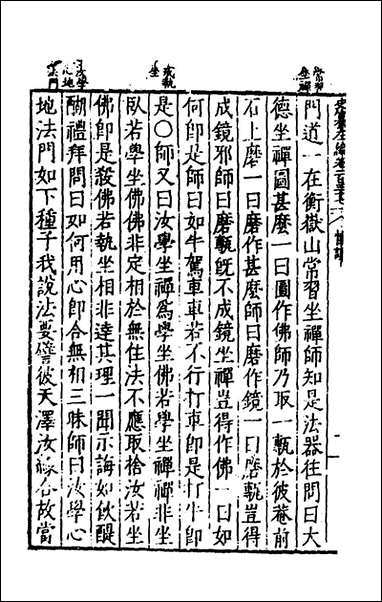 左編卷一百
常習
坐禪
門道一在衡嶽山常習坐禪師知是法器往問曰大
德坐禪圖甚麼一曰圖作佛師乃取一甎於彼菴前
石上磨一曰磨作甚麼師曰磨作鏡一曰磨甎豈得
成鏡邪師曰磨甎旣不成鏡坐禪豈得作佛一曰如
何卽是師曰如牛駕車車若不行打車卽是打牛卽
戒執
坐
是〇師又曰汝學坐禪爲學坐佛若學坐禪禪非坐
臥若學坐佛佛非定相於無住法不應取捨汝若坐
佛卽是殺佛若執坐相非達其理一聞示誨如飲醍
醐禮拜問曰如何用心卽合無相三昧師曰汝學心
地法門如下種子我說法要譬彼天澤汝緣合故當